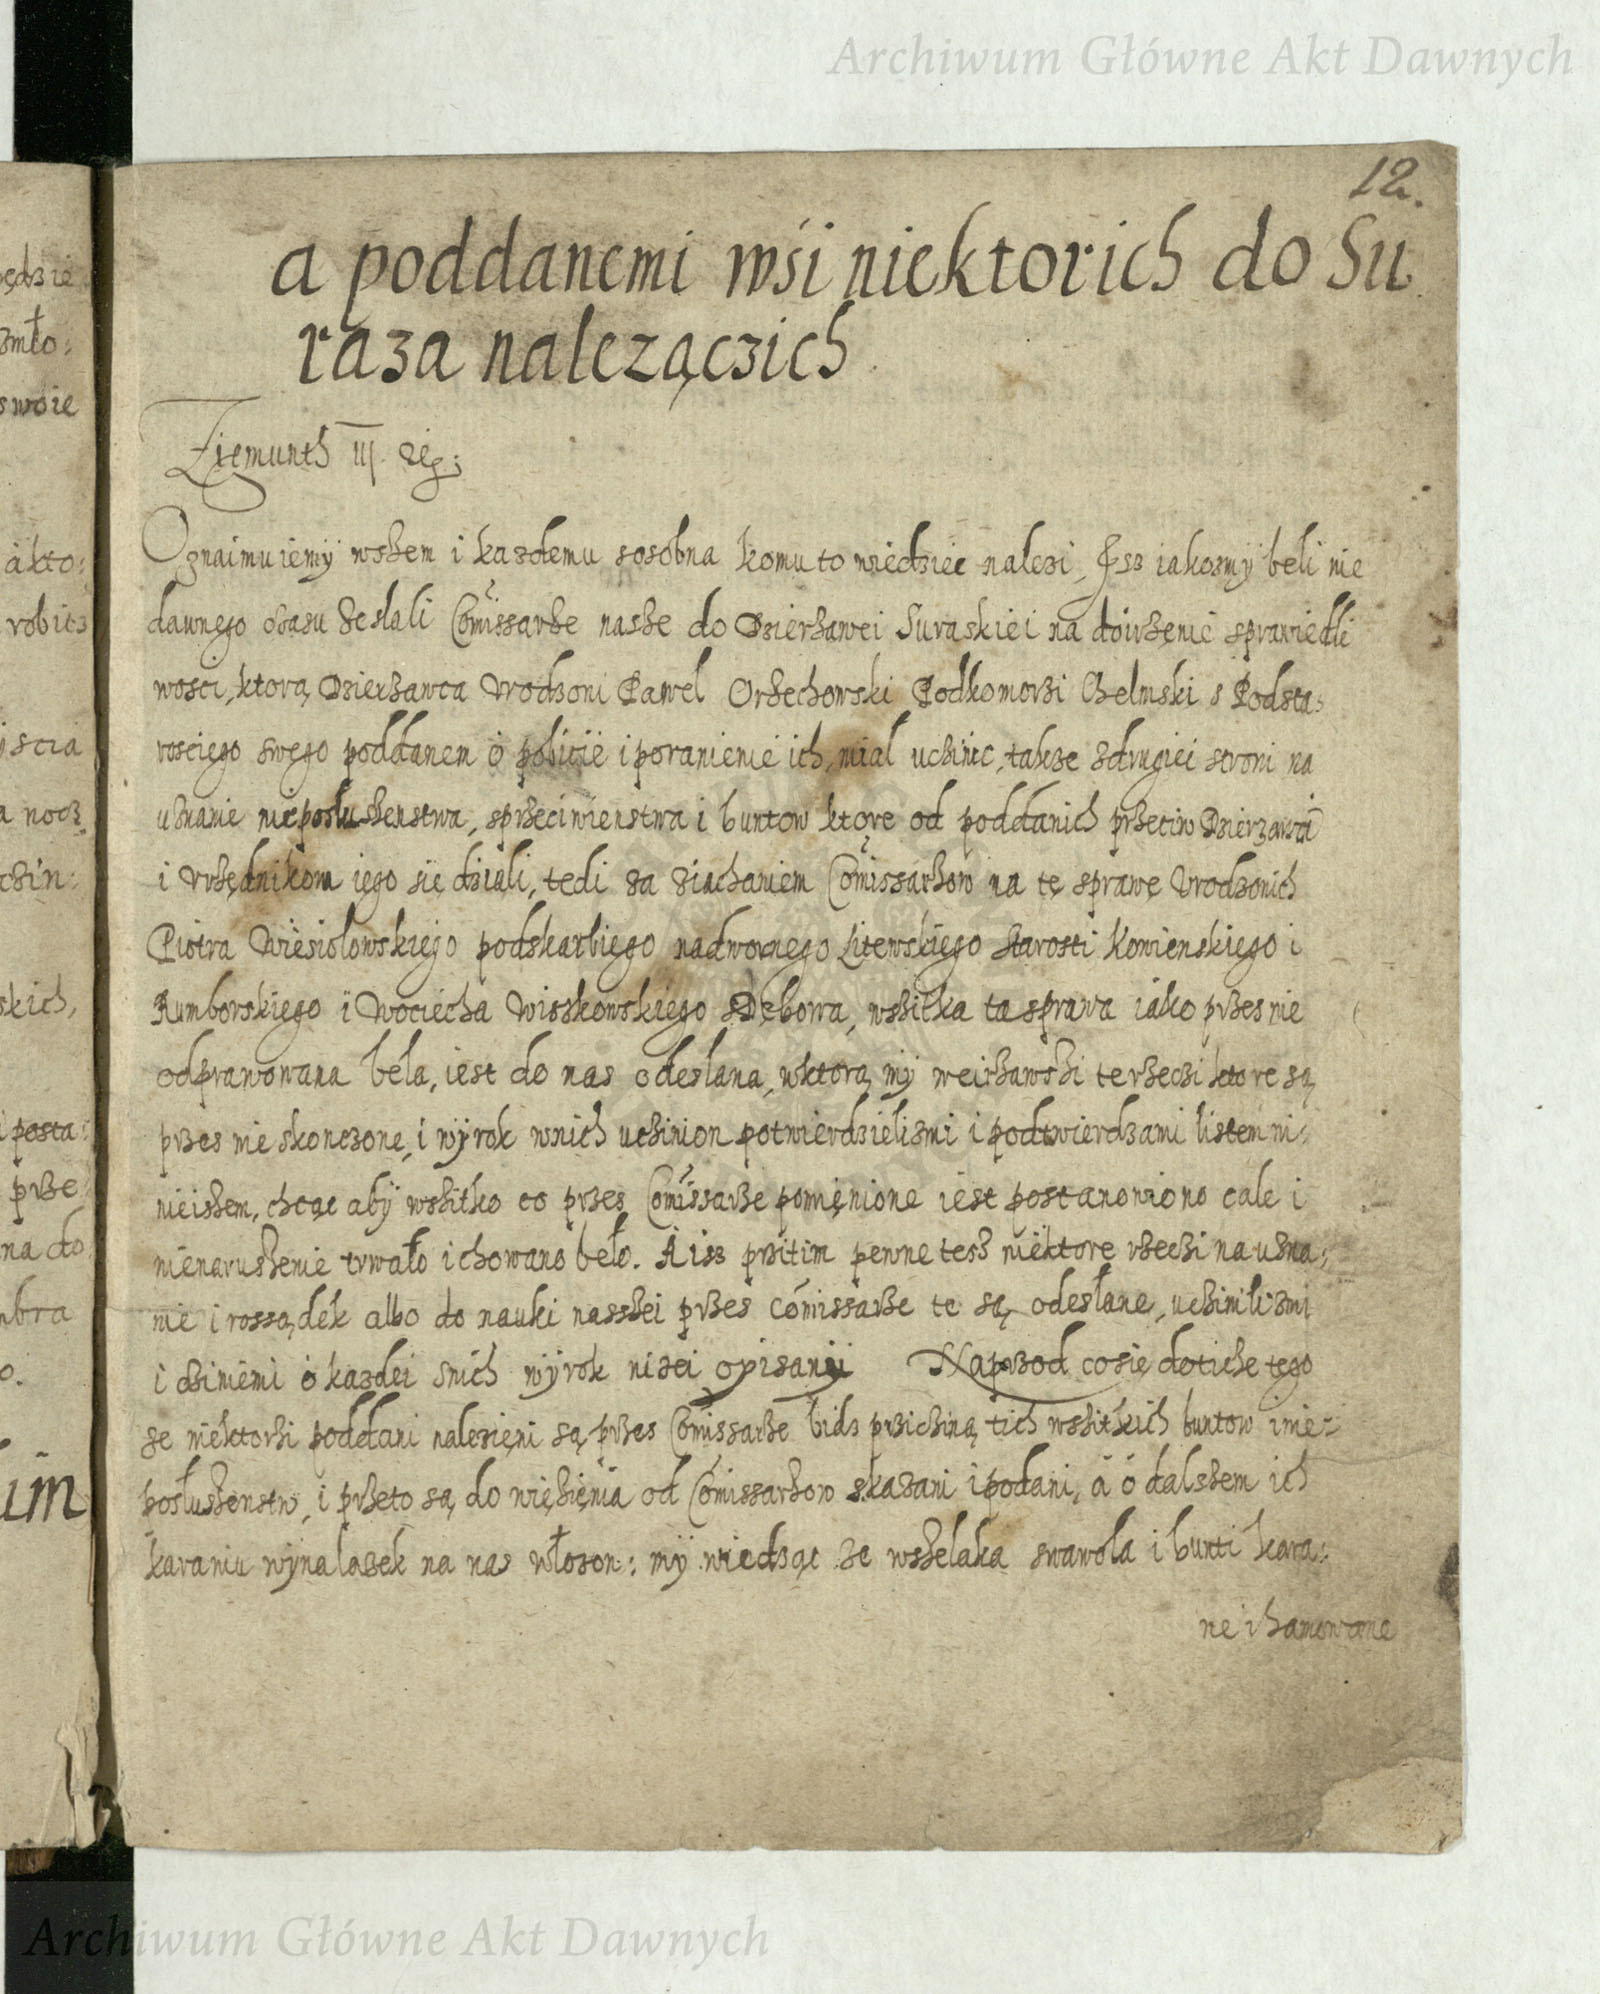 Archiwum Główne Akt Dawnych
12.
a poddanemi wsi niektorich do Su
raza nalezączich
Zigmunth III reg:
Oznaimuiemÿ wszem i kazdemu zosobna komu to wiedziec nalezi, Isz iakozmÿ beli nie
dawnego czasu zeslali Comissarze nasze do Dzierzawei Suraskiei na doirzenie sprawiedli
wosci, ktorą Dzierzawca Urodzoni Pawel Orzechowski Podkomorzi Chelmski s Podsta:
rosciego swego poddanem o pobicie i poranienie ich, mial uczinic, takze zdrugiei stroni na
uznanie nieposluszenstwa, sprzeciwienstwa i buntow ktore od poddanich przeciw Dzierzawci
i Urzędnikom iego się dziali, tedi za ziachaniem Comissarzow na tę sprawę Urodzonich
Piotra Wiesiolowskiego podskarbiego nadwornego Litewskiego Starosti Kowienskiego i
Rumborskiego i Wociecha Wiszkowskiego z Dębowa, wszitka ta sprawa iako przes nie
odprawowana bela, iest do nas odeslana, wktorą mÿ weirzawszi te rzeczi ktore są
przes nie skonczone, i wÿrok wnich uczinion potwierdzielizmi i podtwierdzami listem ni:
nieiszem, chcąc abÿ wszitko co przes Comissarze pomięnione iest postanowiono cale i
nienaruszenie trwało i chowano beło. A isz przitim pewne tesz niektore rzeczi na uzna:
nie i rossądek albo do nauki nasszei przes Comissarze te są odesłane, uczinilizmi
i cziniemi o kazdei snich wÿrok nizei opisanÿ Naprzod co się dotiche tego
ze niektorzi poddani nalezięni są przes Comissarze bidz prziczină tich wszitkich buntow i nie:
posłuszenstw, i przeto są do więzięnia od Comissarzow skazani i podani, a o dalszem ich
karaniu wÿnalazek na nas włozon: mÿ wiedząc ze wszelaka swawola i bunti kara:
ne i hamowane
Archiwum Główne Akt Dawnych